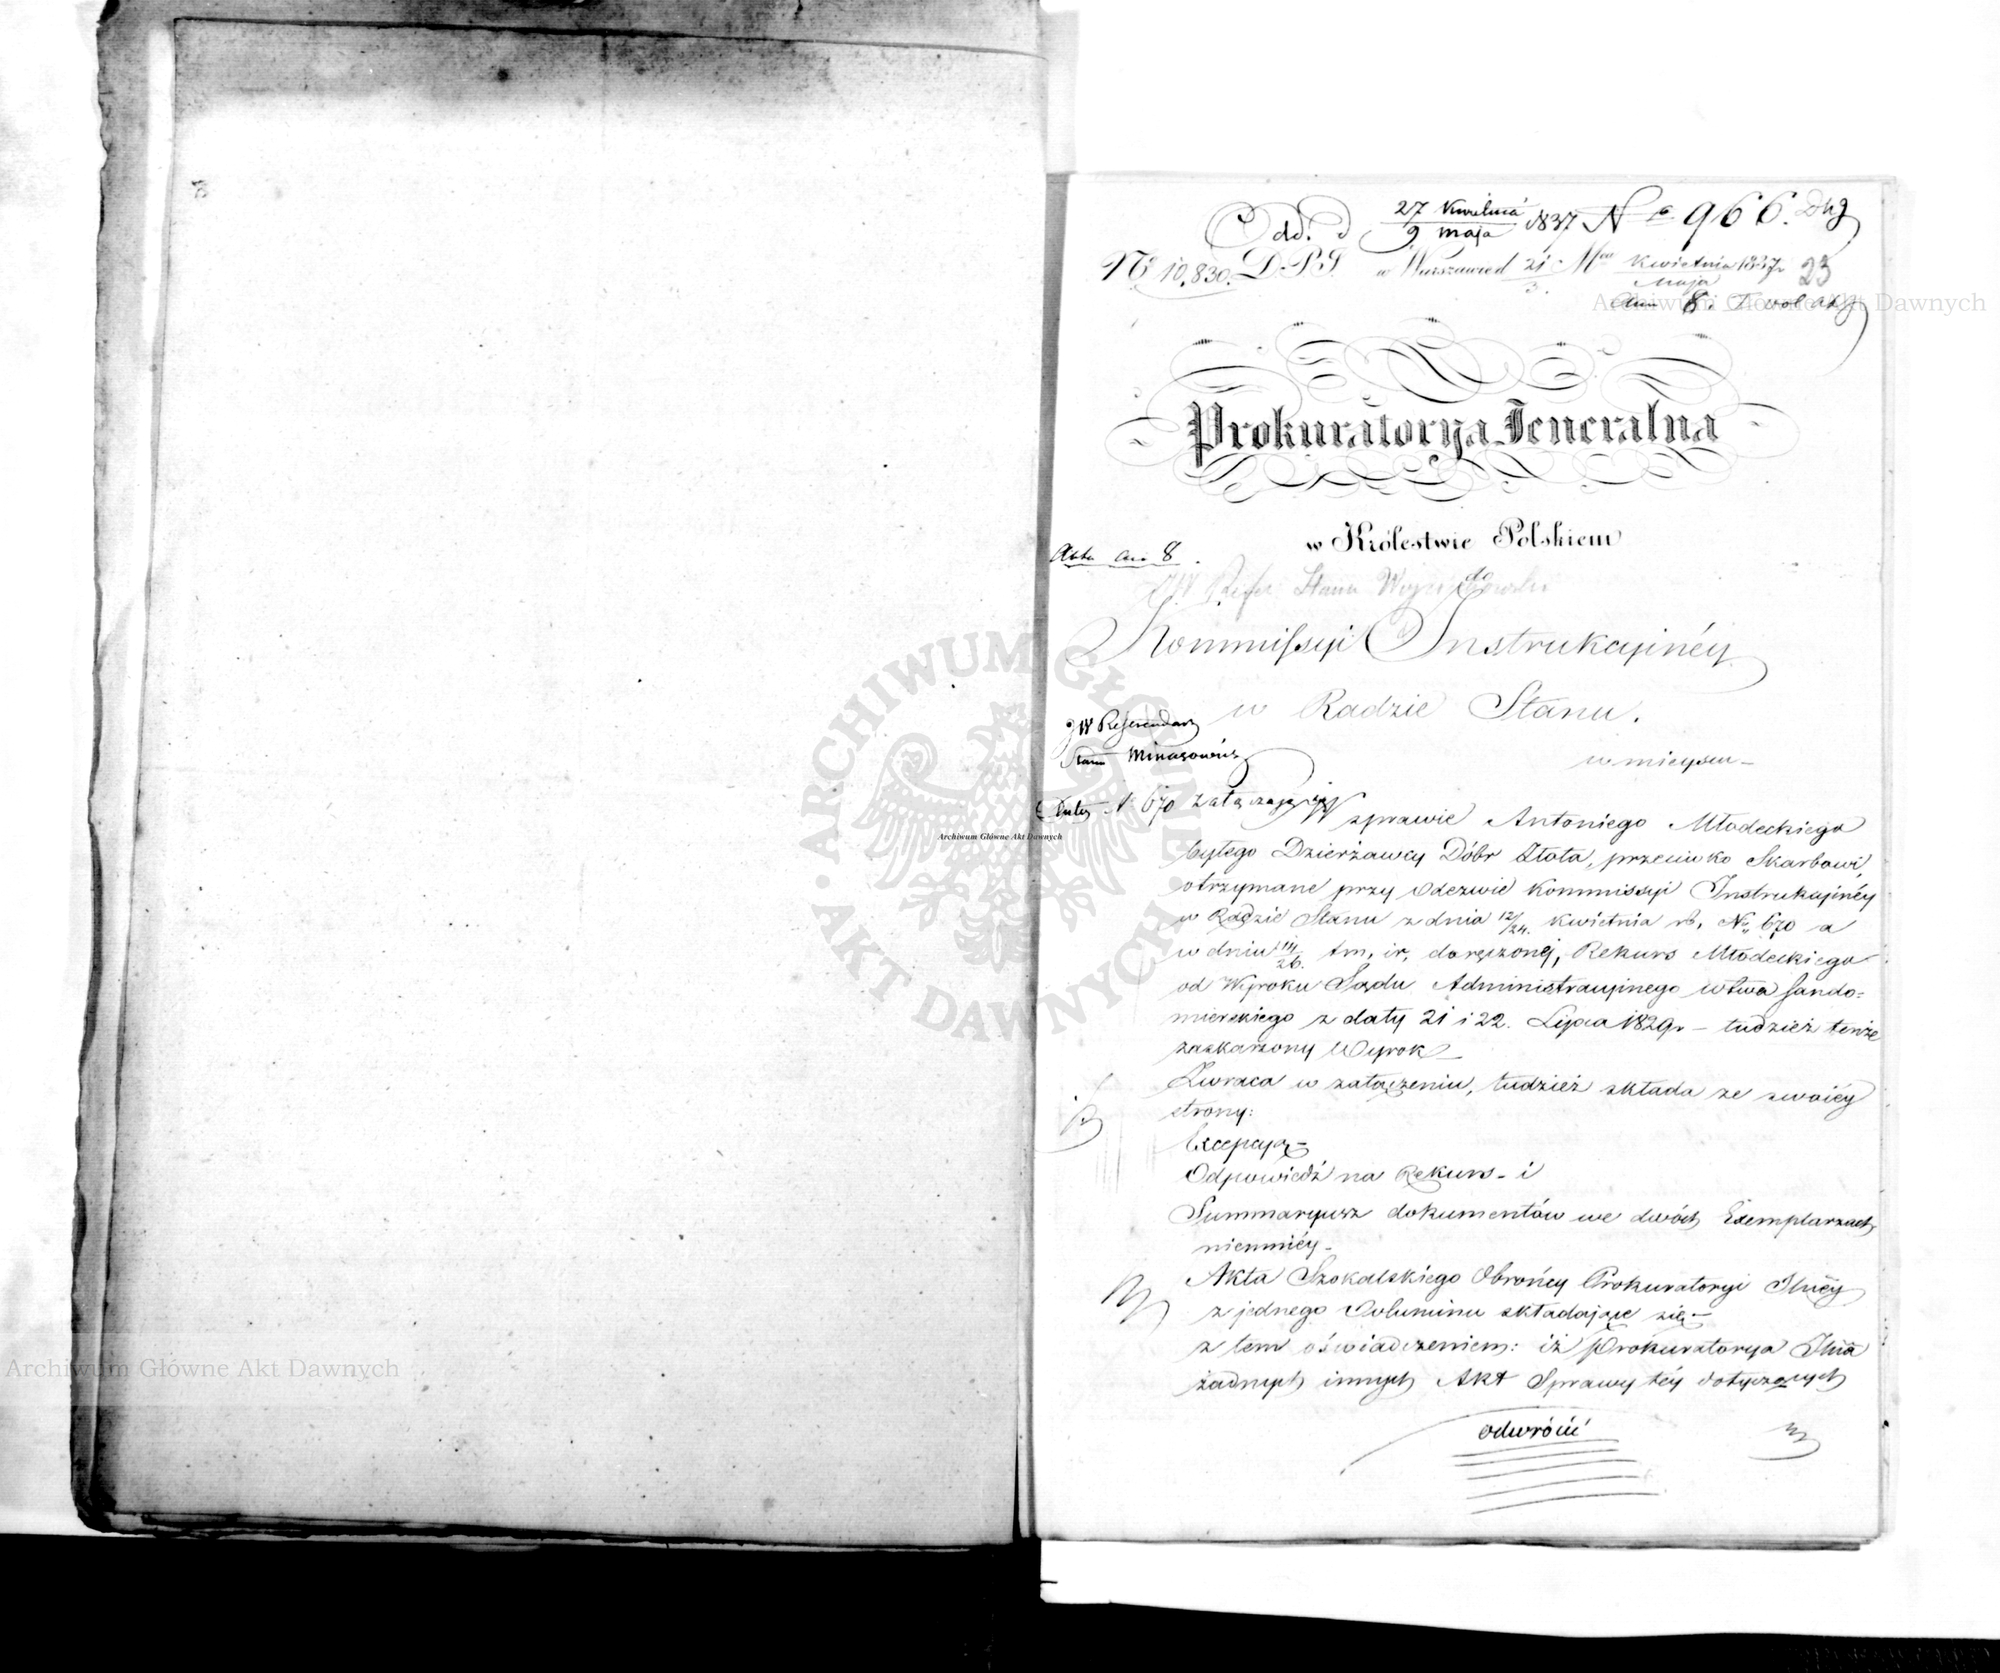 Odd. d 27 Kwietnia / 9 maja 1837 No 966. Dzg
No 10,830. D.P.S. w Warszawie d 21/3. Mca Kwietnia / Maja 1837r 23
8.
Prokuratorya Jeneralna
w Królestwie Polskiem
Akta 8.
do
JW Refer Stanu
Kommissyi Instrukcyinéy
w Radzie Stanu.
JW Referendarz
Stanu Minasowicz
w mieyscu
N 670 załączający
W sprawie Antoniego Młodeckiego
byłego Dzierżawcy Dóbr Złota, przeciwko Skarbowi,
otrzymane przy Odezwie Kommissyi Instrukcyinéy
w Radzie Stanu z dnia 12/24. Kwietnia rb. No 670 a
w dniu 14/26. t.m. i r. doręczonéj, Rekurs Młodeckiego
od Wyroku Sądu Administracyinego Wtwa Sando-
mierskiego z daty 21 i 22. Lipca 1829r – tudzież tenże
zaskarżony Wyrok
Zwraca w załączeniu, tudzież składa ze swoiéy
strony:
Excepcyą –
Odpowiedź na Rekurs – i
Summaryusz dokumentów we dwóch Exemplarzach
niemniéy –
Akta Szokalskiego Obrońcy Prokuratoryi Jlnéy
z jednego Voluminu składające się –
z tem oświadczeniem: iż Prokuratorya Jlna
żadnych innych Akt Sprawy téy dotyczących
odwrócić
Archiwum Główne Akt Dawnych
Archiwum Główne Akt Dawnych
Archiwum Główne Akt Dawnych
ARCHIWUM GŁÓWNE AKT DAWNYCH